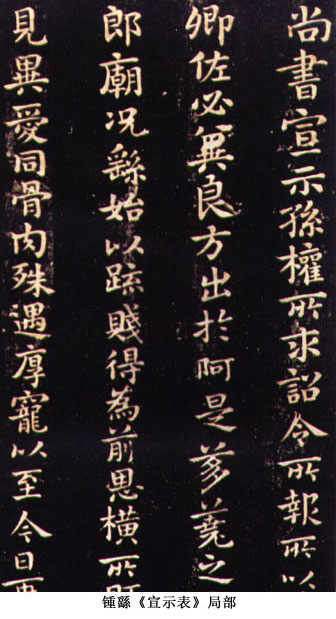 尚書宣示孫權所求詔令所報所以
卿佐必冀良方出於阿是芻蕘之
郎廟況繇始以疏賤得為前恩橫所
見異愛同骨肉殊遇厚寵以至今日再
锺繇《宣示表》局部